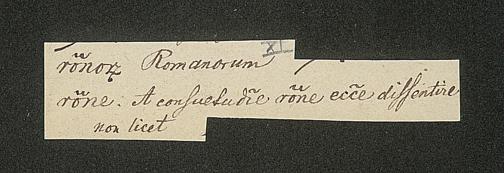 XI
rõnoꝝ Romanorum
rõne. A consuetudĩe rõne ecc̃e dissentire
non licet